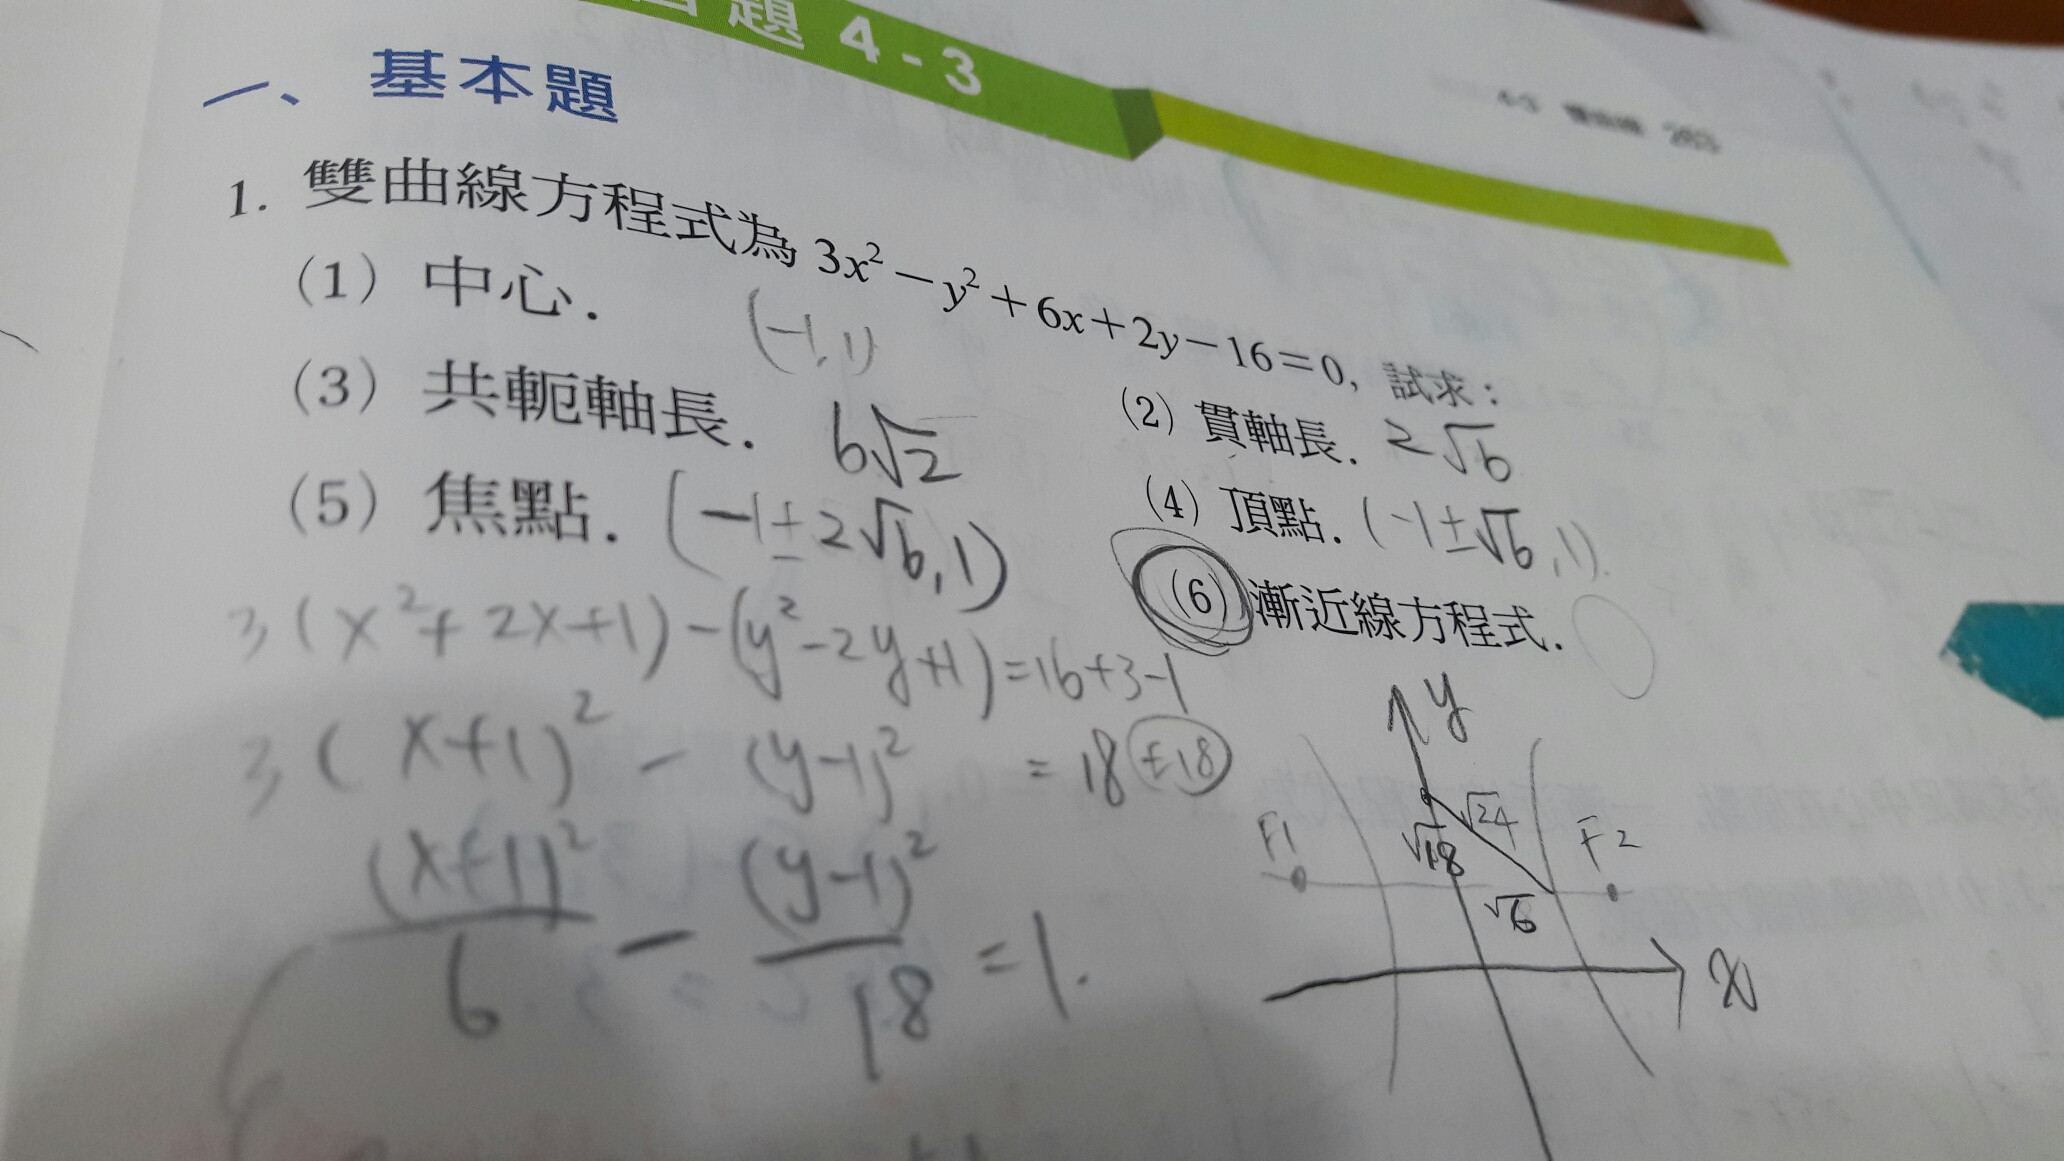 題 4-3
4-3 雙曲線 263
一、基本題
1. 雙曲線方程式為 3x²－y²＋6x＋2y－16＝0, 試求：
(1) 中心． (-1, 1)
(2) 貫軸長． 2√6
(3) 共軛軸長． 6√2
(4) 頂點． (-1±√6, 1)
(5) 焦點． (-1±2√6, 1)
(6) 漸近線方程式．
3(x²+2x+1)-(y²-2y+1)=16+3-1
3(x+1)² - (y-1)² = 18 ÷18
(x+1)²/6 - (y-1)²/18 = 1.
y
F1
√18
√24
F2
√6
x